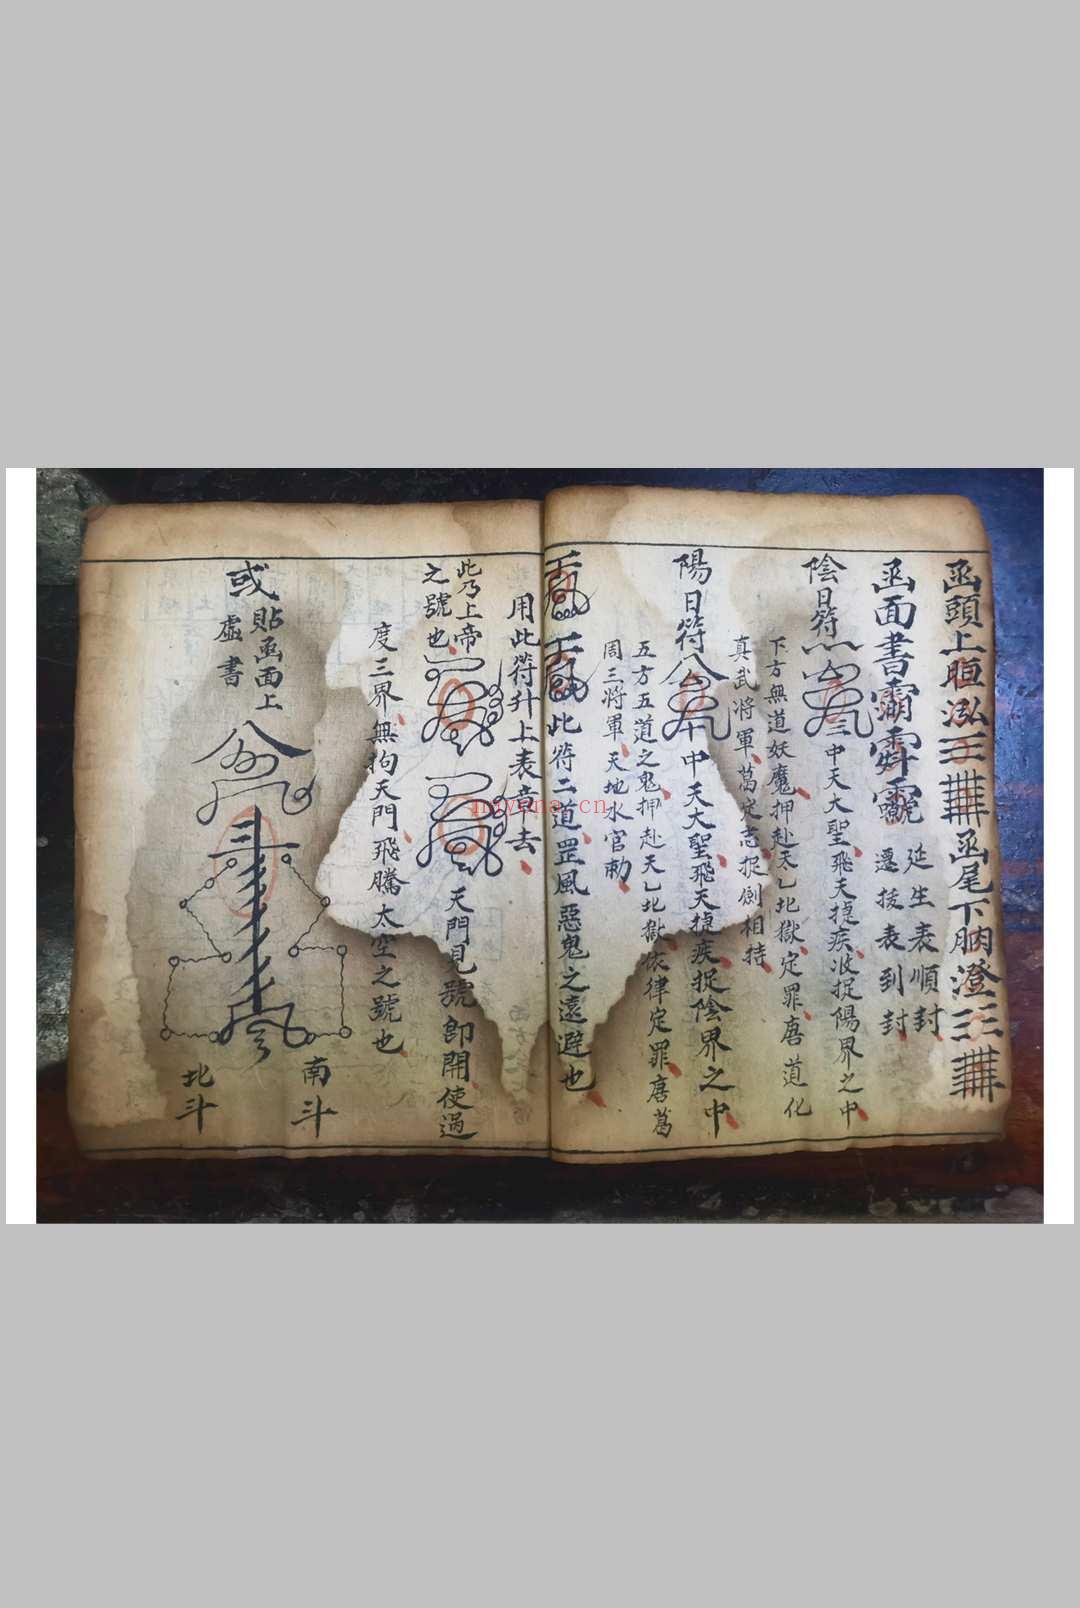 函頭上 泓 函尾下 澄
函面書 延生表順封
遷拔表到封
陰日符 中天大聖飛天捷疾 捉陽界之中
下方無道妖魔押赴天乙北獄定罪唐道化
真武將軍葛定志捉劍相持
陽日符 中天大聖飛天捷疾捉陰界之中
五方五道之鬼押赴天乙北獄依律定罪唐葛
周三將軍天地水官勅
此符二道罡風惡鬼之遠避也
用此符升上表章去
此乃上帝
之號也 天門見號即開使過
度三界無拘天門飛騰太空之號也
或貼函面上
虛書
南斗
北斗